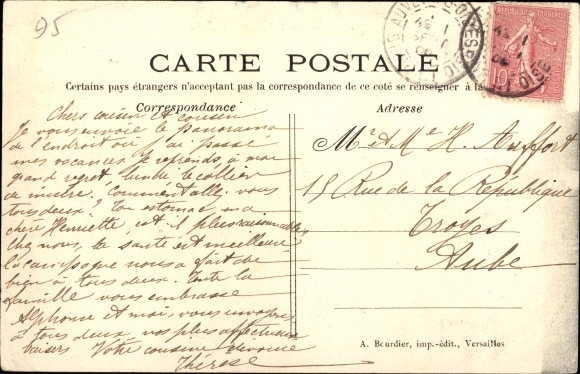 95
CARTE POSTALE
Certains pays étrangers n'acceptant pas la correspondance de ce coté se renseigner à la
Correspondance
Adresse
Chers cousin et cousine
Je vous envoie le panorama
de l'endroit où j'ai passé
mes vacances. Je reprends, à mon
grand regret le collier
de misère. Comment allez-vous
tous deux? Ton estomac ma
chère Henriette est-il plus raisonnable,
chez nous, la santé est meilleure
la campagne nous a fait du
bien à tous deux. Toute la
famille vous embrasse
Alphonse et moi vous envoyons
à tous deux nos plus affectueux
baisers Votre cousine dévouée
Thérèse
Mr & Me H. Auffort
15 Rue de la République
Troyes
Aube
A. Bourdier, imp.-édit., Versailles
REPUBLIQUE FRANÇAISE
10
OISE